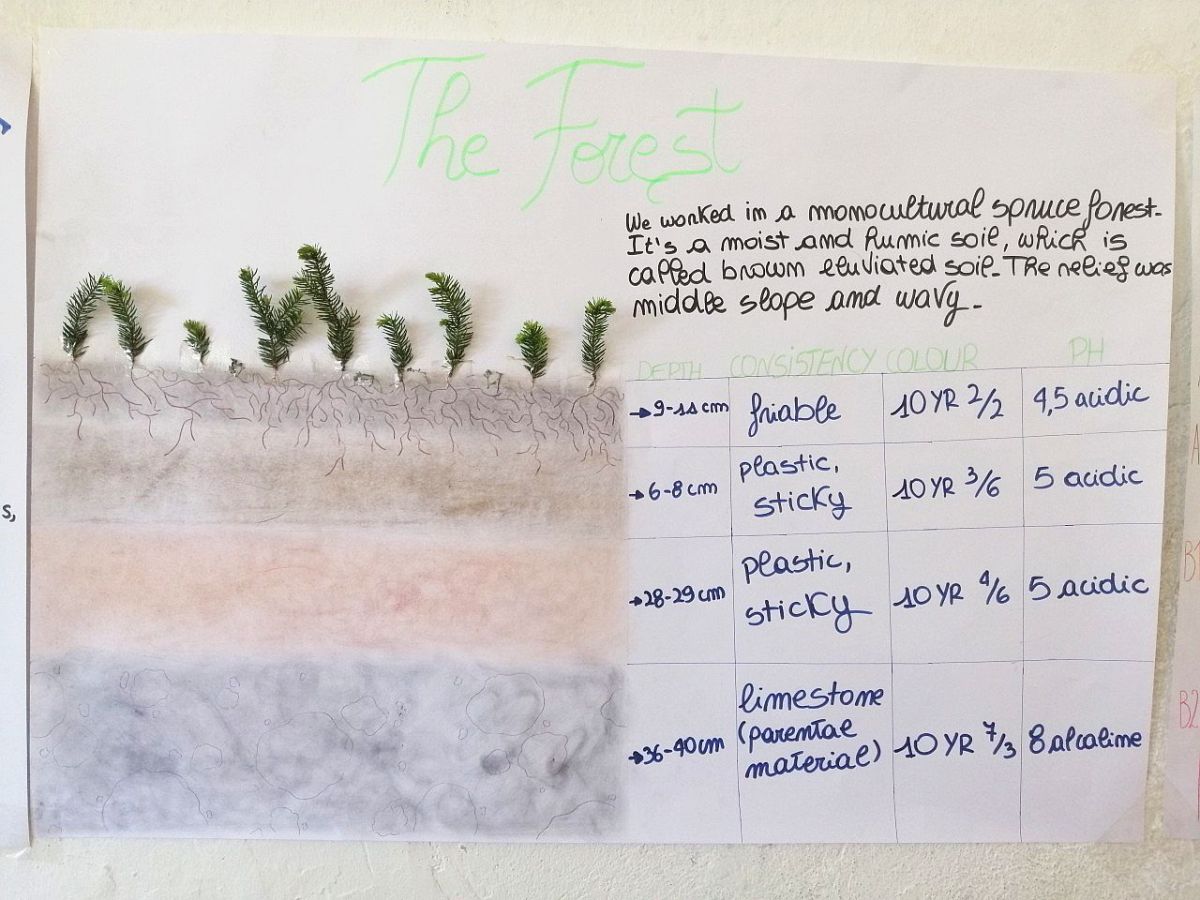 The Forest
We worked in a monocultural spruce forest.
It's a moist and humic soil, which is
called brown eluviated soil. The relief was
middle slope and wavy.
DEPTH CONSISTENCY COLOUR PH
→9-11 cm friable 10 YR 2/2 4,5 acidic
→6-8 cm plastic, sticky 10 YR 3/6 5 acidic
→28-29 cm plastic, sticky 10 YR 4/6 5 acidic
→36-40 cm limestone (parental material) 10 YR 7/3 8 alcaline
s,
A
B1
B2